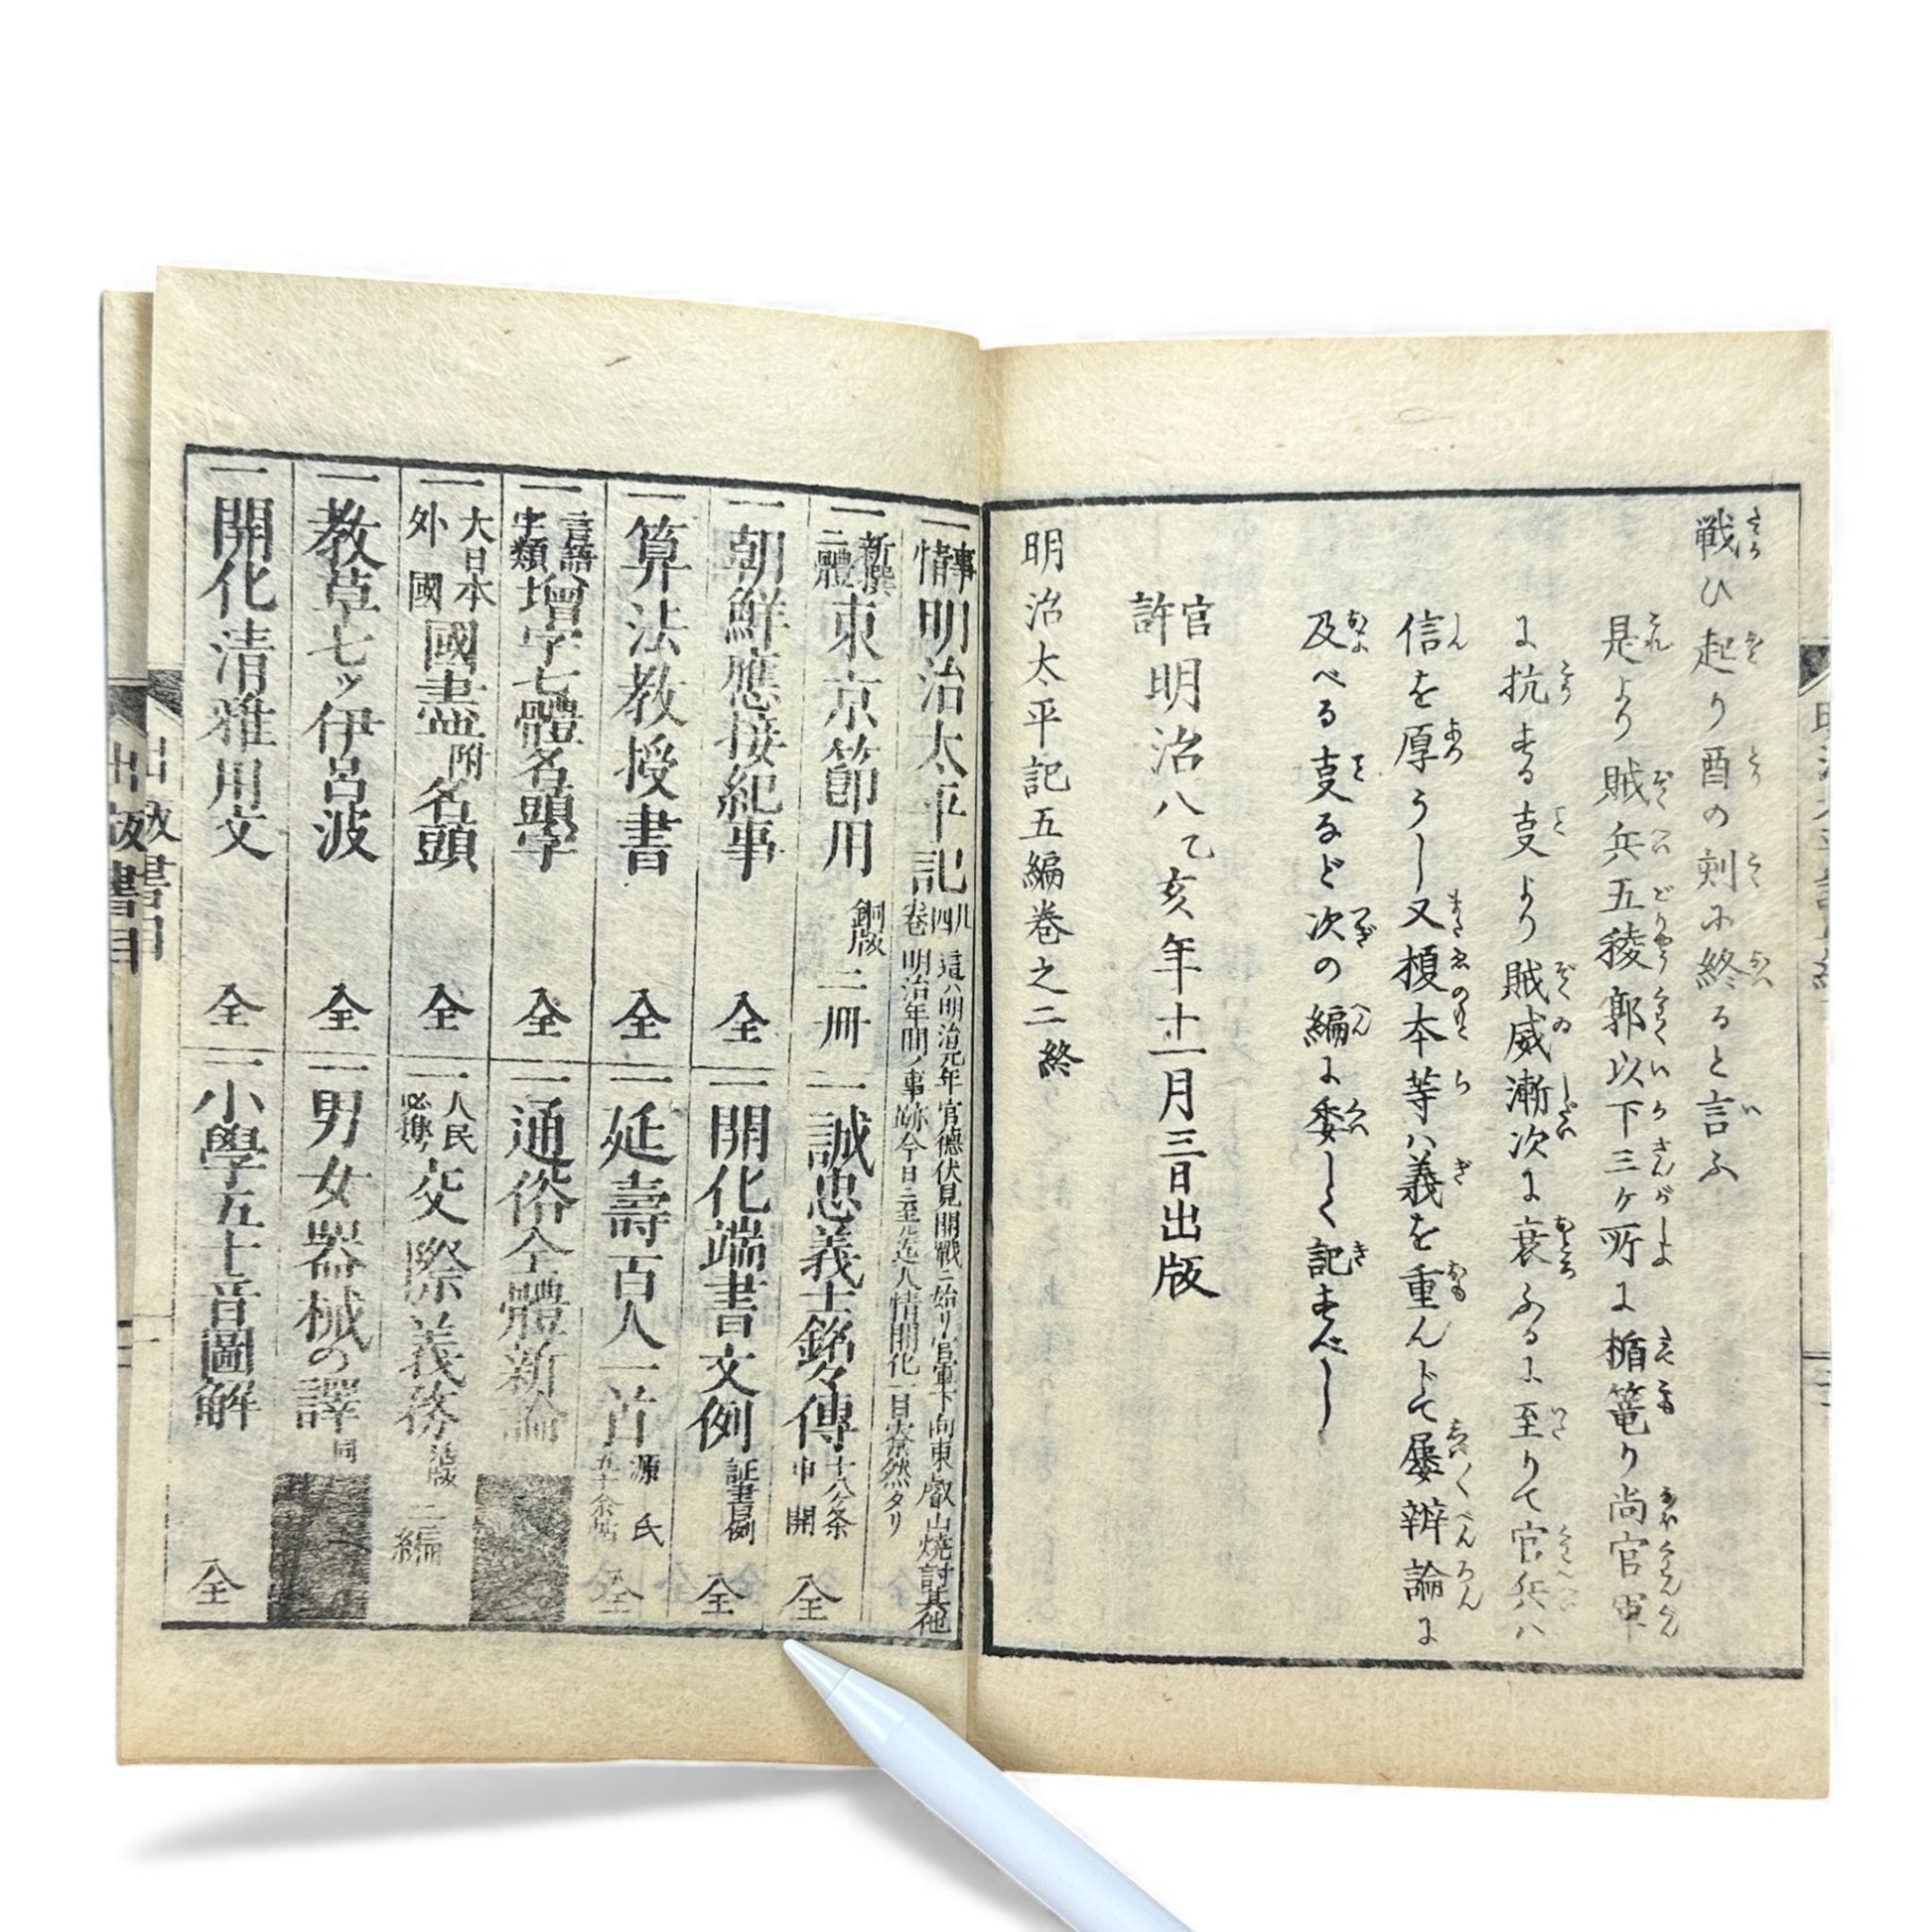 戦ひ起り酉の刻に終ると言ふ
是より賊兵五稜郭以下三ヶ所に楯篭り尚官軍
に抗する支より賊威漸次に衰ふるに至りて官兵ハ
信を厚うし又榎本等ハ義を重んドて屡辨論に
及べる支など次の編に委しく記すべし
官許 明治八乙亥年十一月三日出版
明治太平記五編巻之二終
一事情明治太平記
這ハ明治元年官德伏見開戰ニ始リ官軍下向東叡山焼討其他
明治年間ノ事跡今日ニ至
人情開化一目寮然タリ
一新撰三體東京節用 銅版 二冊
一誠忠義士銘々傳 十八ケ条申開 全
一朝鮮應接紀事 全
一開化端書文例 証書例 全
一算法教授書 全
一延壽百人一首 源氏五十余帖 全
一言語字類增字七體名頭字 全
一通俗全體新論
一大日本外國國盡附名頭 全
一人民必携交際義務 活版 二編
一教草七ッ伊呂波 全
一男女器械の譯 同
一開化清雅用文 全
一小學五十音圖解 全
出版書目
出版書目